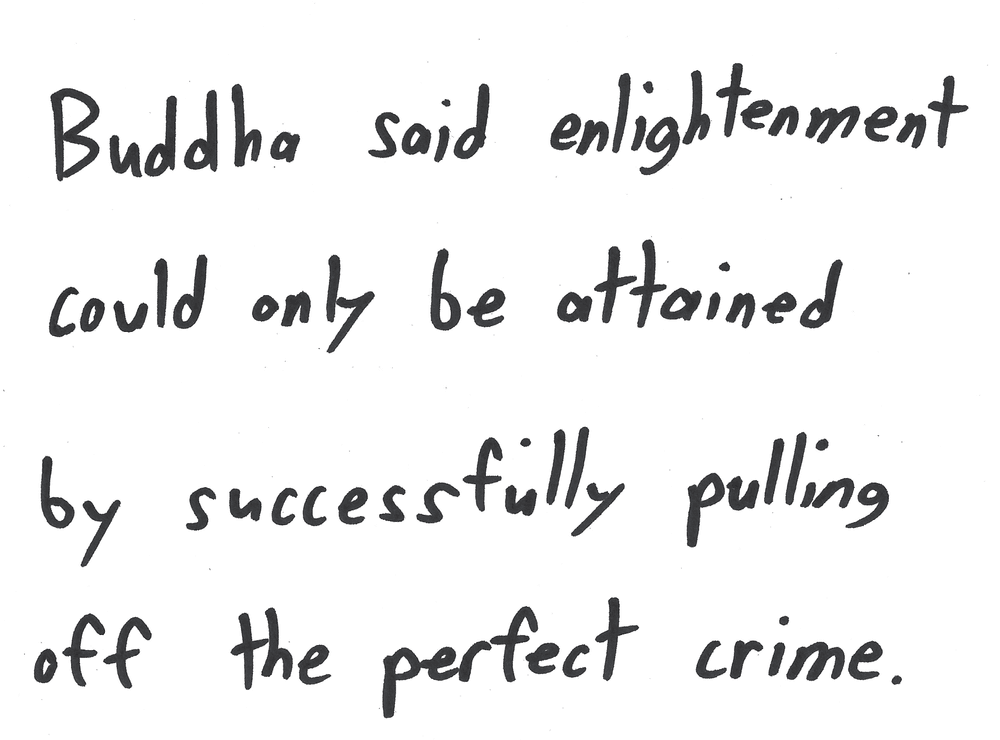 Buddha said enlightenment
could only be attained
by successfully pulling
off the perfect crime.